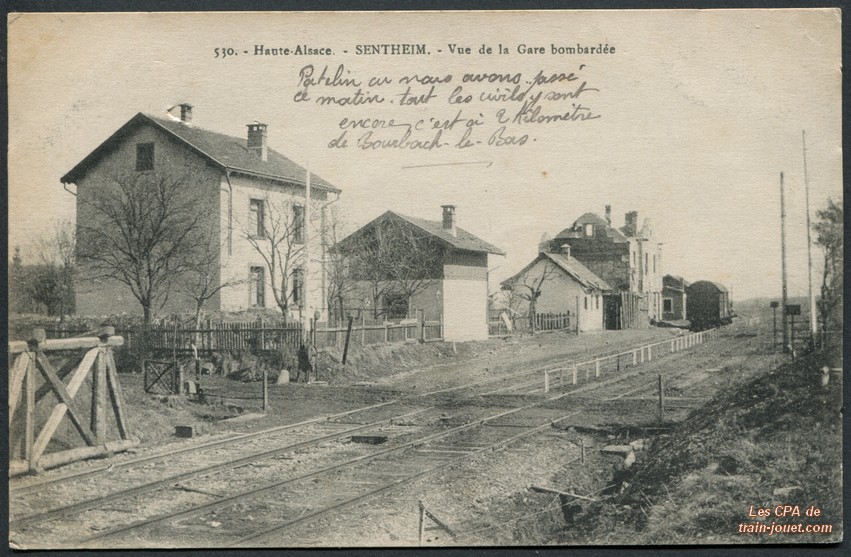 530. - Haute-Alsace. - SENTHEIM. - Vue de la Gare bombardée
Patelin ou nous avons passé
ce matin. tout les civils y sont
encore, c'est à 2 Kilomètre
de Bourbach-le-Bas.
Les CPA de
train-jouet.com